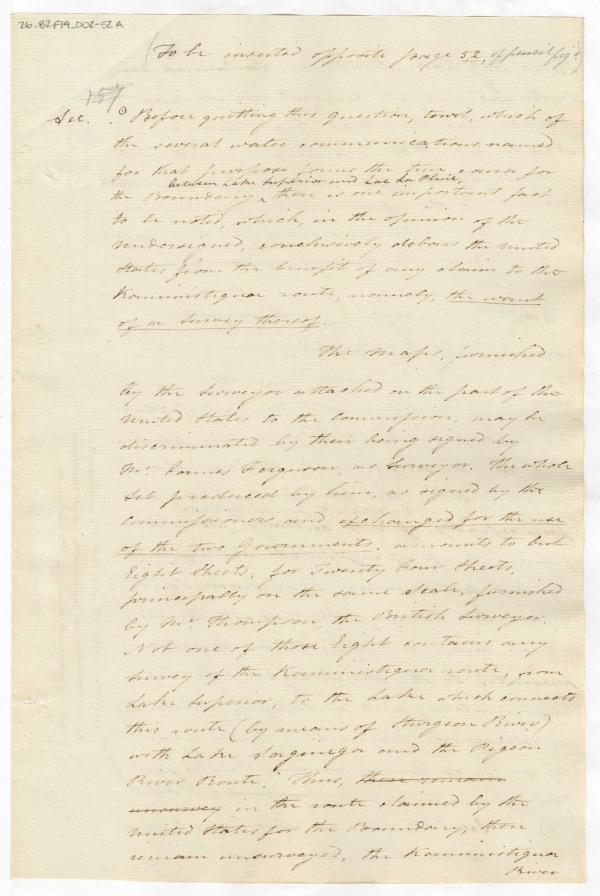 26-B2F14_002-52A
(To be inserted opposite page 52, of pencil fig.s)
157
Sec. . Before quitting this question, towit, which of
the several water communications named
for that purpose forms the true course for
between Lake Superior and Lac La Pluie,
the Boundary, there is one important fact
to be noted, which, in the opinion of the
undersigned, conclusively debars the United
States from the benefit of any claim to the
Kaministiquia route, namely, the want
of a Survey thereof.
The maps, furnished
by the Surveyor attached on the part of the
United States to the Commission, may be
discriminated by their being signed by
Mr. James Ferguson, as Surveyor. The whole
set produced by him, as signed by the
Commissioners, and exchanged for the use
of the two Governments, amounts to but
Eight Sheets, for Twenty Four Sheets,
principally on the same Scale, furnished
by Mr. Thompson, the British Surveyor.
Not one of those Eight contains any
survey of the Kaministiquia route, from
Lake Superior, to the Lake which connects
this route (by means of Sturgeon River)
with Lake Saginega and the Pigeon
River Route. Thus, there remain
unsurvey in the route claimed by the
United States for the Boundary, there
remain unsurveyed, the Kaministiquia
River